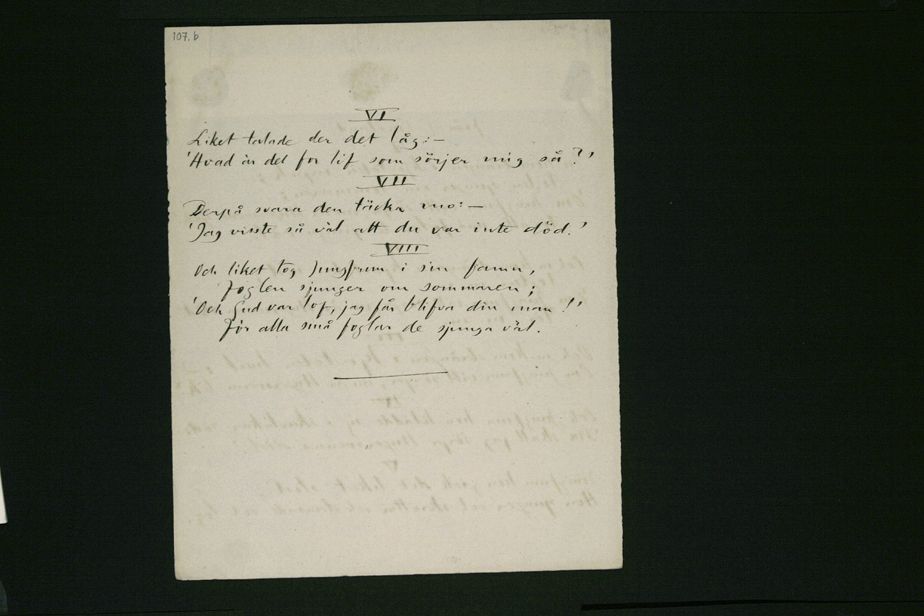 107.b
VI
Liket talade der det låg:—
'Hvad är det för lif som sörjer mig så?'
VII
Derpå svara den täcka mö:—
'Jag visste så väl att du var inte död.'
VIII
Och liket tog Jungfrun i sin famn,
Foglen sjunger om sommaren;
'Och Gud var lof, jag får blifva din man!'
För alla små foglar de sjunga väl.